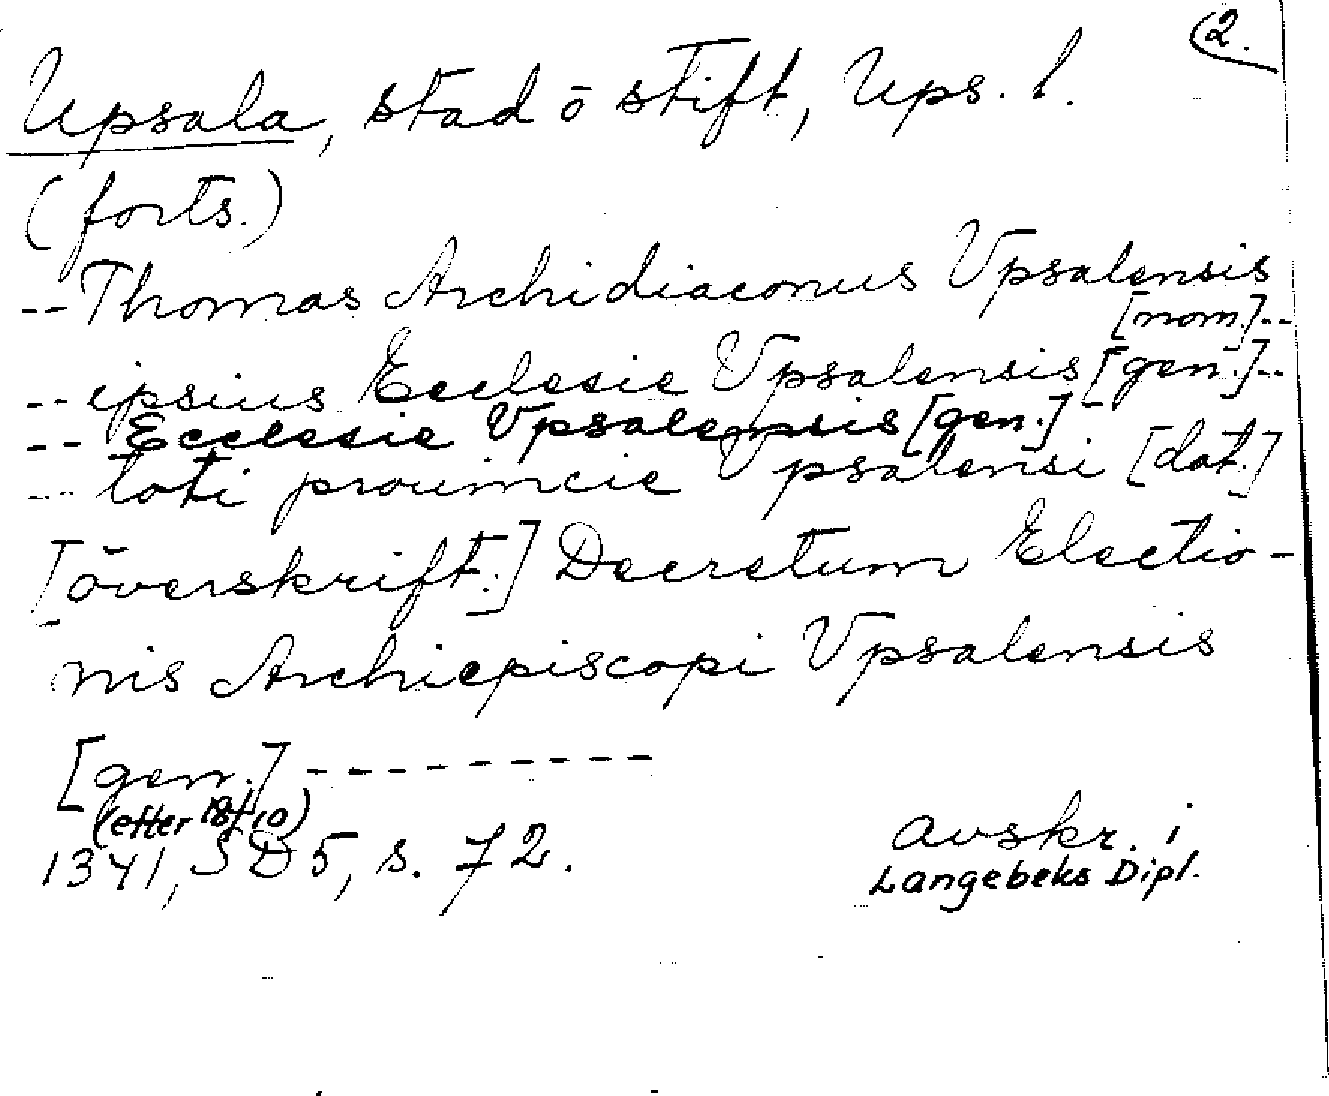 (2.
Upsala, stad ō stift, Ups. l.
(forts.)
-- Thomas Archidiaconus Vpsalensis
[nom.]--
-- ipsius Ecclesie Vpsalensis [gen.]--
-- Ecclesie Vpsalensis [gen.] -
--- toti prouincie Vpsalensi [dat.]
[överskrift.] Decretum Electio-
nis Archiepiscopi Vpsalensis
[gen.] ---------
(efter 18/10)
1341, SD 5, s. 72.
avskr. i
Langebeks Dipl.